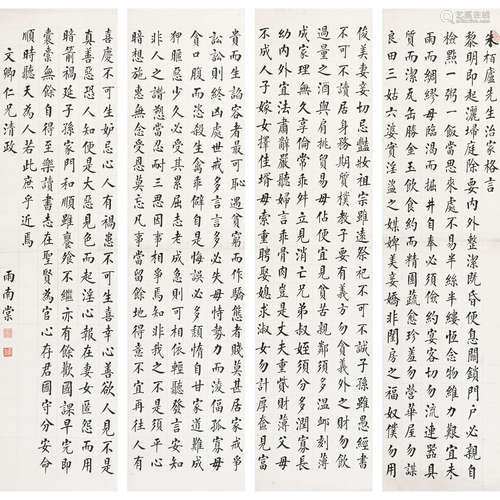 朱栢廬先生治家格言
黎明即起灑掃庭除要內外整潔既昏便息關鎖門戶必親自
檢點一粥一飯當思來處不易半絲半縷恆念物維力艱宜未
雨而綢繆毋臨渴而掘井自奉必須儉約宴客切勿流連器具
質而潔瓦缶勝金玉飲食約而精園蔬愈珍羞勿營華屋勿謀
良田三姑六婆實淫盜之媒婢美妾嬌非閨房之福奴僕勿用
俊美妻妾切忌艷妝祖宗雖遠祭祀不可不誠子孫雖愚經書
不可不讀居身務期質樸教子要有義方勿貪意外之財勿飲
過量之酒與肩挑貿易毋佔便宜見貧苦親鄰須多溫卹刻薄
成家理無久享倫常乖舛立見消亡兄弟叔姪須多分潤寡長
幼內外宜法肅辭嚴聽婦言乖骨肉豈是丈夫重貲財薄父母
不成人子嫁女擇佳壻毋索重聘娶媳求淑女勿計厚奩見富
貴而生諂容者最可恥遇貧窮而作驕態者賤莫甚居家戒爭
訟訟則終凶處世戒多言言多必失毋恃勢力而凌偪孤寡勿
貪口腹而恣殺生禽乖僻自是悔誤必多頹惰自甘家道難成
狎暱惡少久必受其累屈志老成急則可相依輕聽發言安知
非人之譖愬當忍耐三思因事相爭焉知非我之不是須平心
暗想施惠無念受恩莫忘凡事當留餘地得意不宜再往人有
喜慶不可生妒忌心人有禍患不可生喜幸心善欲人見不是
真善惡恐人知便是大惡見色而起淫心報在妻女匿怨而用
暗箭禍延子孫家門和順雖饔飧不繼亦有餘歡國課早完即
囊橐無餘自得至樂讀書志在聖賢為官心存君國守分安命
順時聽天為人若此庶乎近焉
文卿仁兄清政
雨南棠